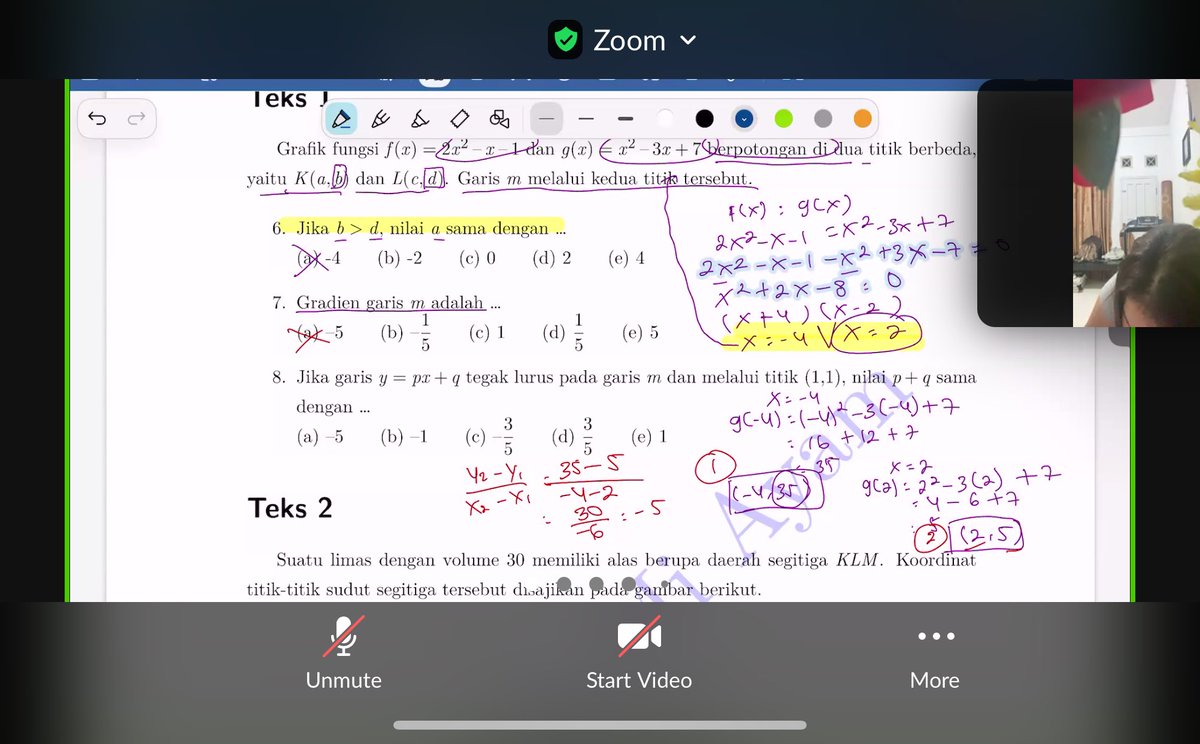 Zoom
Teks 1
Grafik fungsi f(x) = 2x² – x – 1 dan g(x) = x² – 3x + 7 berpotongan di dua titik berbeda,
yaitu K(a,b) dan L(c,d). Garis m melalui kedua titik tersebut.
6. Jika b > d, nilai a sama dengan ...
(a) -4 (b) -2 (c) 0 (d) 2 (e) 4
7. Gradien garis m adalah ...
(a) –5 (b) –1/5 (c) 1 (d) 1/5 (e) 5
8. Jika garis y = px + q tegak lurus pada garis m dan melalui titik (1,1), nilai p + q sama
dengan ...
(a) –5 (b) –1 (c) –3/5 (d) 3/5 (e) 1
f(x) : g(x)
2x²-x-1 = x²-3x+7
2x²-x-1-x²+3x-7 = 0
x²+2x-8 = 0
(x+4) (x-2)
x = -4 V x = 2
x = -4
g(-4) = (-4)²-3(-4)+7
: 16 + 12 + 7
: 35
① (-4,35)
x = 2
g(2) = 2²-3(2)+7
= 4-6+7
② (2,5)
y₂-y₁/x₂-x₁ = 35-5/-4-2
: 30/-6 : -5
Ayam
Teks 2
Suatu limas dengan volume 30 memiliki alas berupa daerah segitiga KLM. Koordinat
titik-titik sudut segitiga tersebut disajikan pada gambar berikut.
Unmute Start Video More